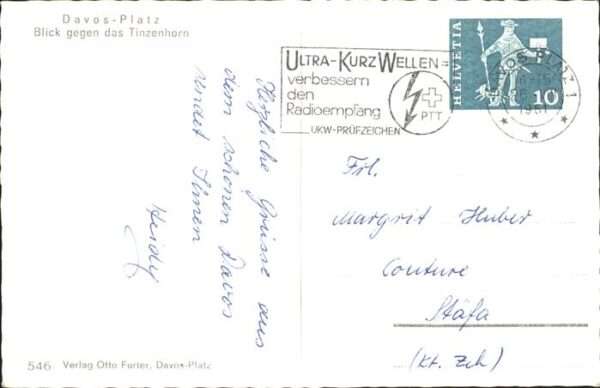 Davos-Platz
Blick gegen das Tinzenhorn
Herzliche Grüsse aus
dem schönen Davos
sendet Ihnen
Heidy
546 Verlag Otto Furter, Davos-Platz
ULTRA-KURZWELLEN
verbessern
den
Radioempfang
UKW-PRÜFZEICHEN
PTT
HELVETIA
10
DAVOS-PLATZ 1
Frl.
Margrit Huber
Couture
Stäfa
(Kt. Zch)